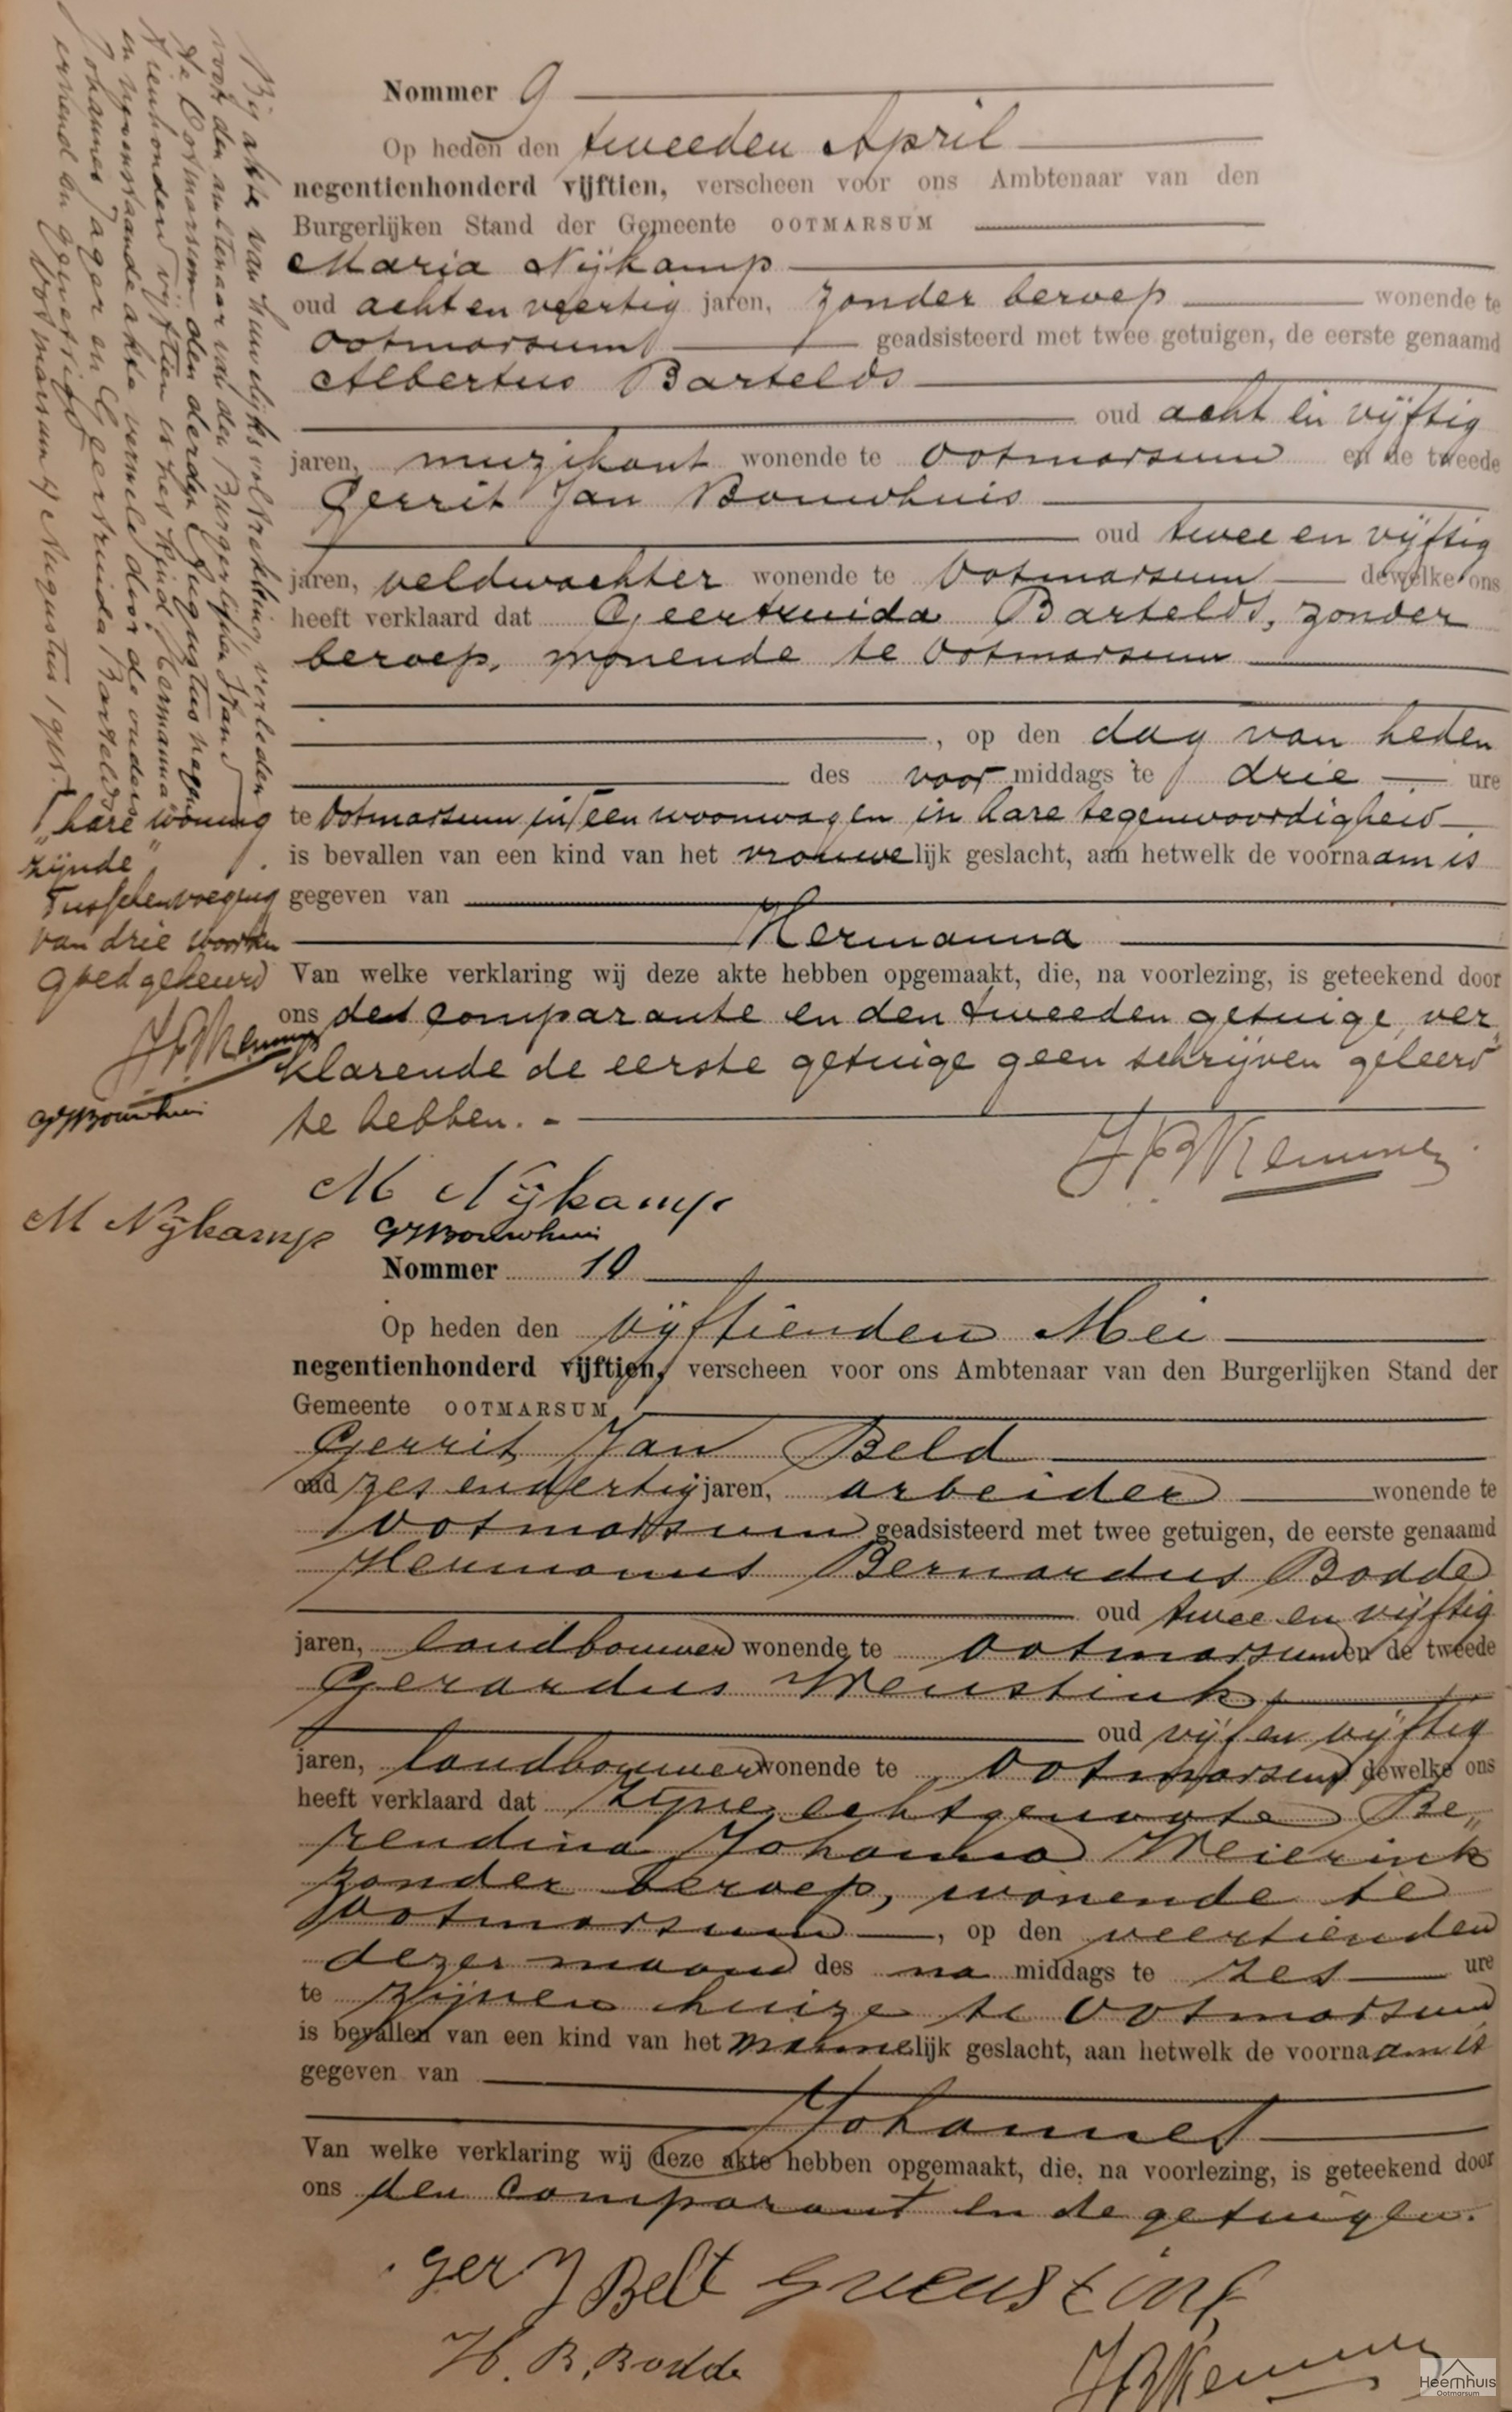 Bij akte van huwelijksvoltrekking, verleden
voor den ambtenaar van den Burgerlijken Stand
te Ootmarsum den derden Augustus negen-
tienhonderd vijftien is het kind Hermanna
in nevenstaande akte vermeld door de ouders
Johannes Jager en Geertruida Bartelds
erkend en gewettigd
Ootmarsum 4 Augustus 1915.
Nommer 9
Op heden den tweeden April
negentienhonderd vijftien, verscheen voor ons Ambtenaar van den
Burgerlijken Stand der Gemeente OOTMARSUM
Maria Nijkamp
oud acht en veertig jaren, zonder beroep wonende te
Ootmarsum geadsisteerd met twee getuigen, de eerste genaamd
Albertus Bartelds
oud acht en vijftig
jaren, muzikant wonende te Ootmarsum en de tweede
Gerrit Jan Bouwhuis
oud twee en vijftig
jaren, veldwachter wonende te Ootmarsum dewelke ons
heeft verklaard dat Geertruida Bartelds, zonder
beroep, wonende te Ootmarsum
, op den dag van heden
des voor middags te drie ure
te Ootmarsum in een woonwagen in hare tegenwoordigheid
is bevallen van een kind van het vrouwelijk geslacht, aan hetwelk de voornaam is
gegeven van
Hermanna
Van welke verklaring wij deze akte hebben opgemaakt, die, na voorlezing, is geteekend door
ons de comparante en den tweeden getuige, ver„
klarende de eerste getuige geen schrijven geleerd
te hebben. -
hare woning
zijnde"
Tusschenvoeging
van drie woorden
goedgekeurd
GJBouwhuis
M Nijkamp
M Nijkamp
GJBouwhuis
Nommer 10
Op heden den vijftienden Mei
negentienhonderd vijftien, verscheen voor ons Ambtenaar van den Burgerlijken Stand der
Gemeente OOTMARSUM
Gerrit Jan Beld
oud zes en dertig jaren, arbeider wonende te
Ootmarsum geadsisteerd met twee getuigen, de eerste genaamd
Hermannus Bernardus Bodde
oud twee en vijftig
jaren, landbouwer wonende te Ootmarsum en de tweede
Gerardus Weustink
oud vijf en vijftig
jaren, landbouwer wonende te Ootmarsum dewelke ons
heeft verklaard dat zijne echtgenoote Be„
rendina Johanna Meierink
zonder beroep, wonende te
Ootmarsum, op den veertienden
dezer maand des na middags te zes ure
te zijnen huize te Ootmarsum
is bevallen van een kind van het mannelijk geslacht, aan hetwelk de voornaam is
gegeven van
Johannes
Van welke verklaring wij deze akte hebben opgemaakt, die, na voorlezing, is geteekend door
ons den comparant en de getuigen.
Ger J Belt GWeustink
H. B. Bodde
Heemhuis
Ootmarsum